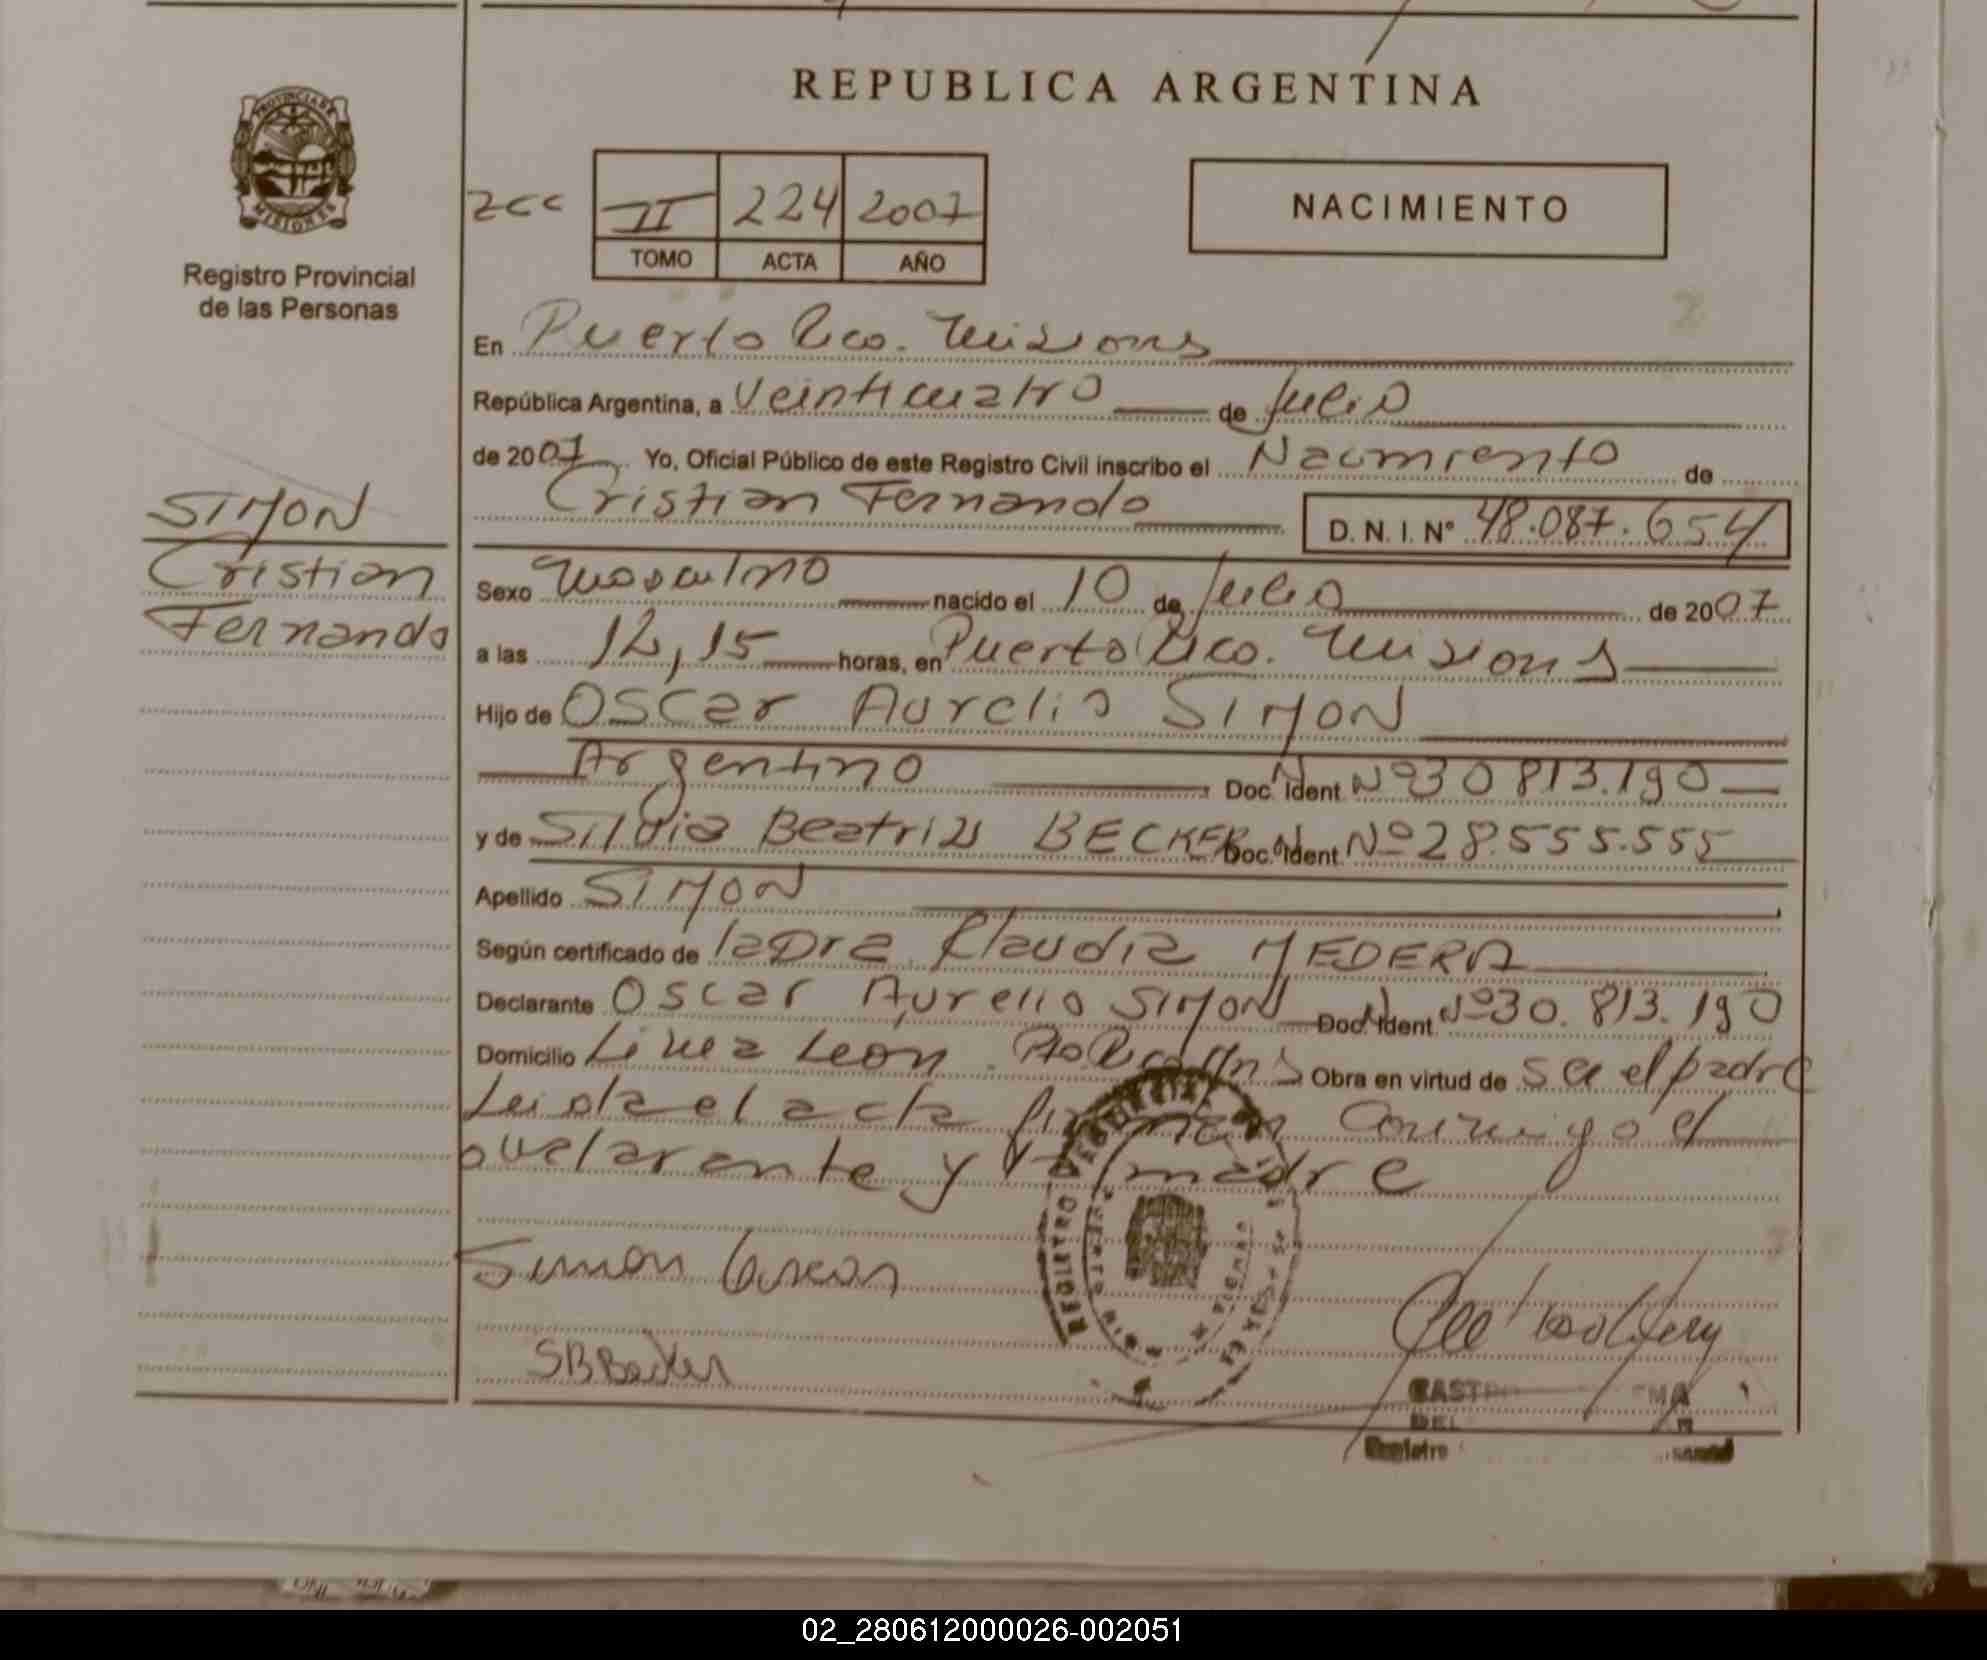 REPUBLICA ARGENTINA
PROVINCIA DE
MISIONES
Registro Provincial
de las Personas
2cc II 224 2007
TOMO ACTA AÑO
NACIMIENTO
En Puerto Rico. Misiones
República Argentina, a Veinticuatro de Julio
de 2007 Yo, Oficial Público de este Registro Civil inscribo el Nacimiento de
Cristian Fernando D. N. I. Nº 48.087.654
SIMON
Cristian
Fernando
Sexo Masculino nacido el 10 de Julio de 2007
a las 12,15 horas, en Puerto Rico. Misiones
Hijo de Oscar Aurelio SIMON
Argentino Doc. Ident. Nº 30 813.190
y de Silvia Beatriz BECKER Doc. Ident. Nº 28.555.555
Apellido SIMON
Según certificado de la Dra. Klaudia MEDERA
Declarante Oscar Aurelio SIMON Doc. Ident. Nº 30.813.190
Domicilio Linea Leon. Pto Rico Mns Obra en virtud de ser el padre
Leida el acta firman conmigo el
declarante y la madre
Simon Oscar
SBBecker
CAST
DEL
Registro
02_280612000026-002051